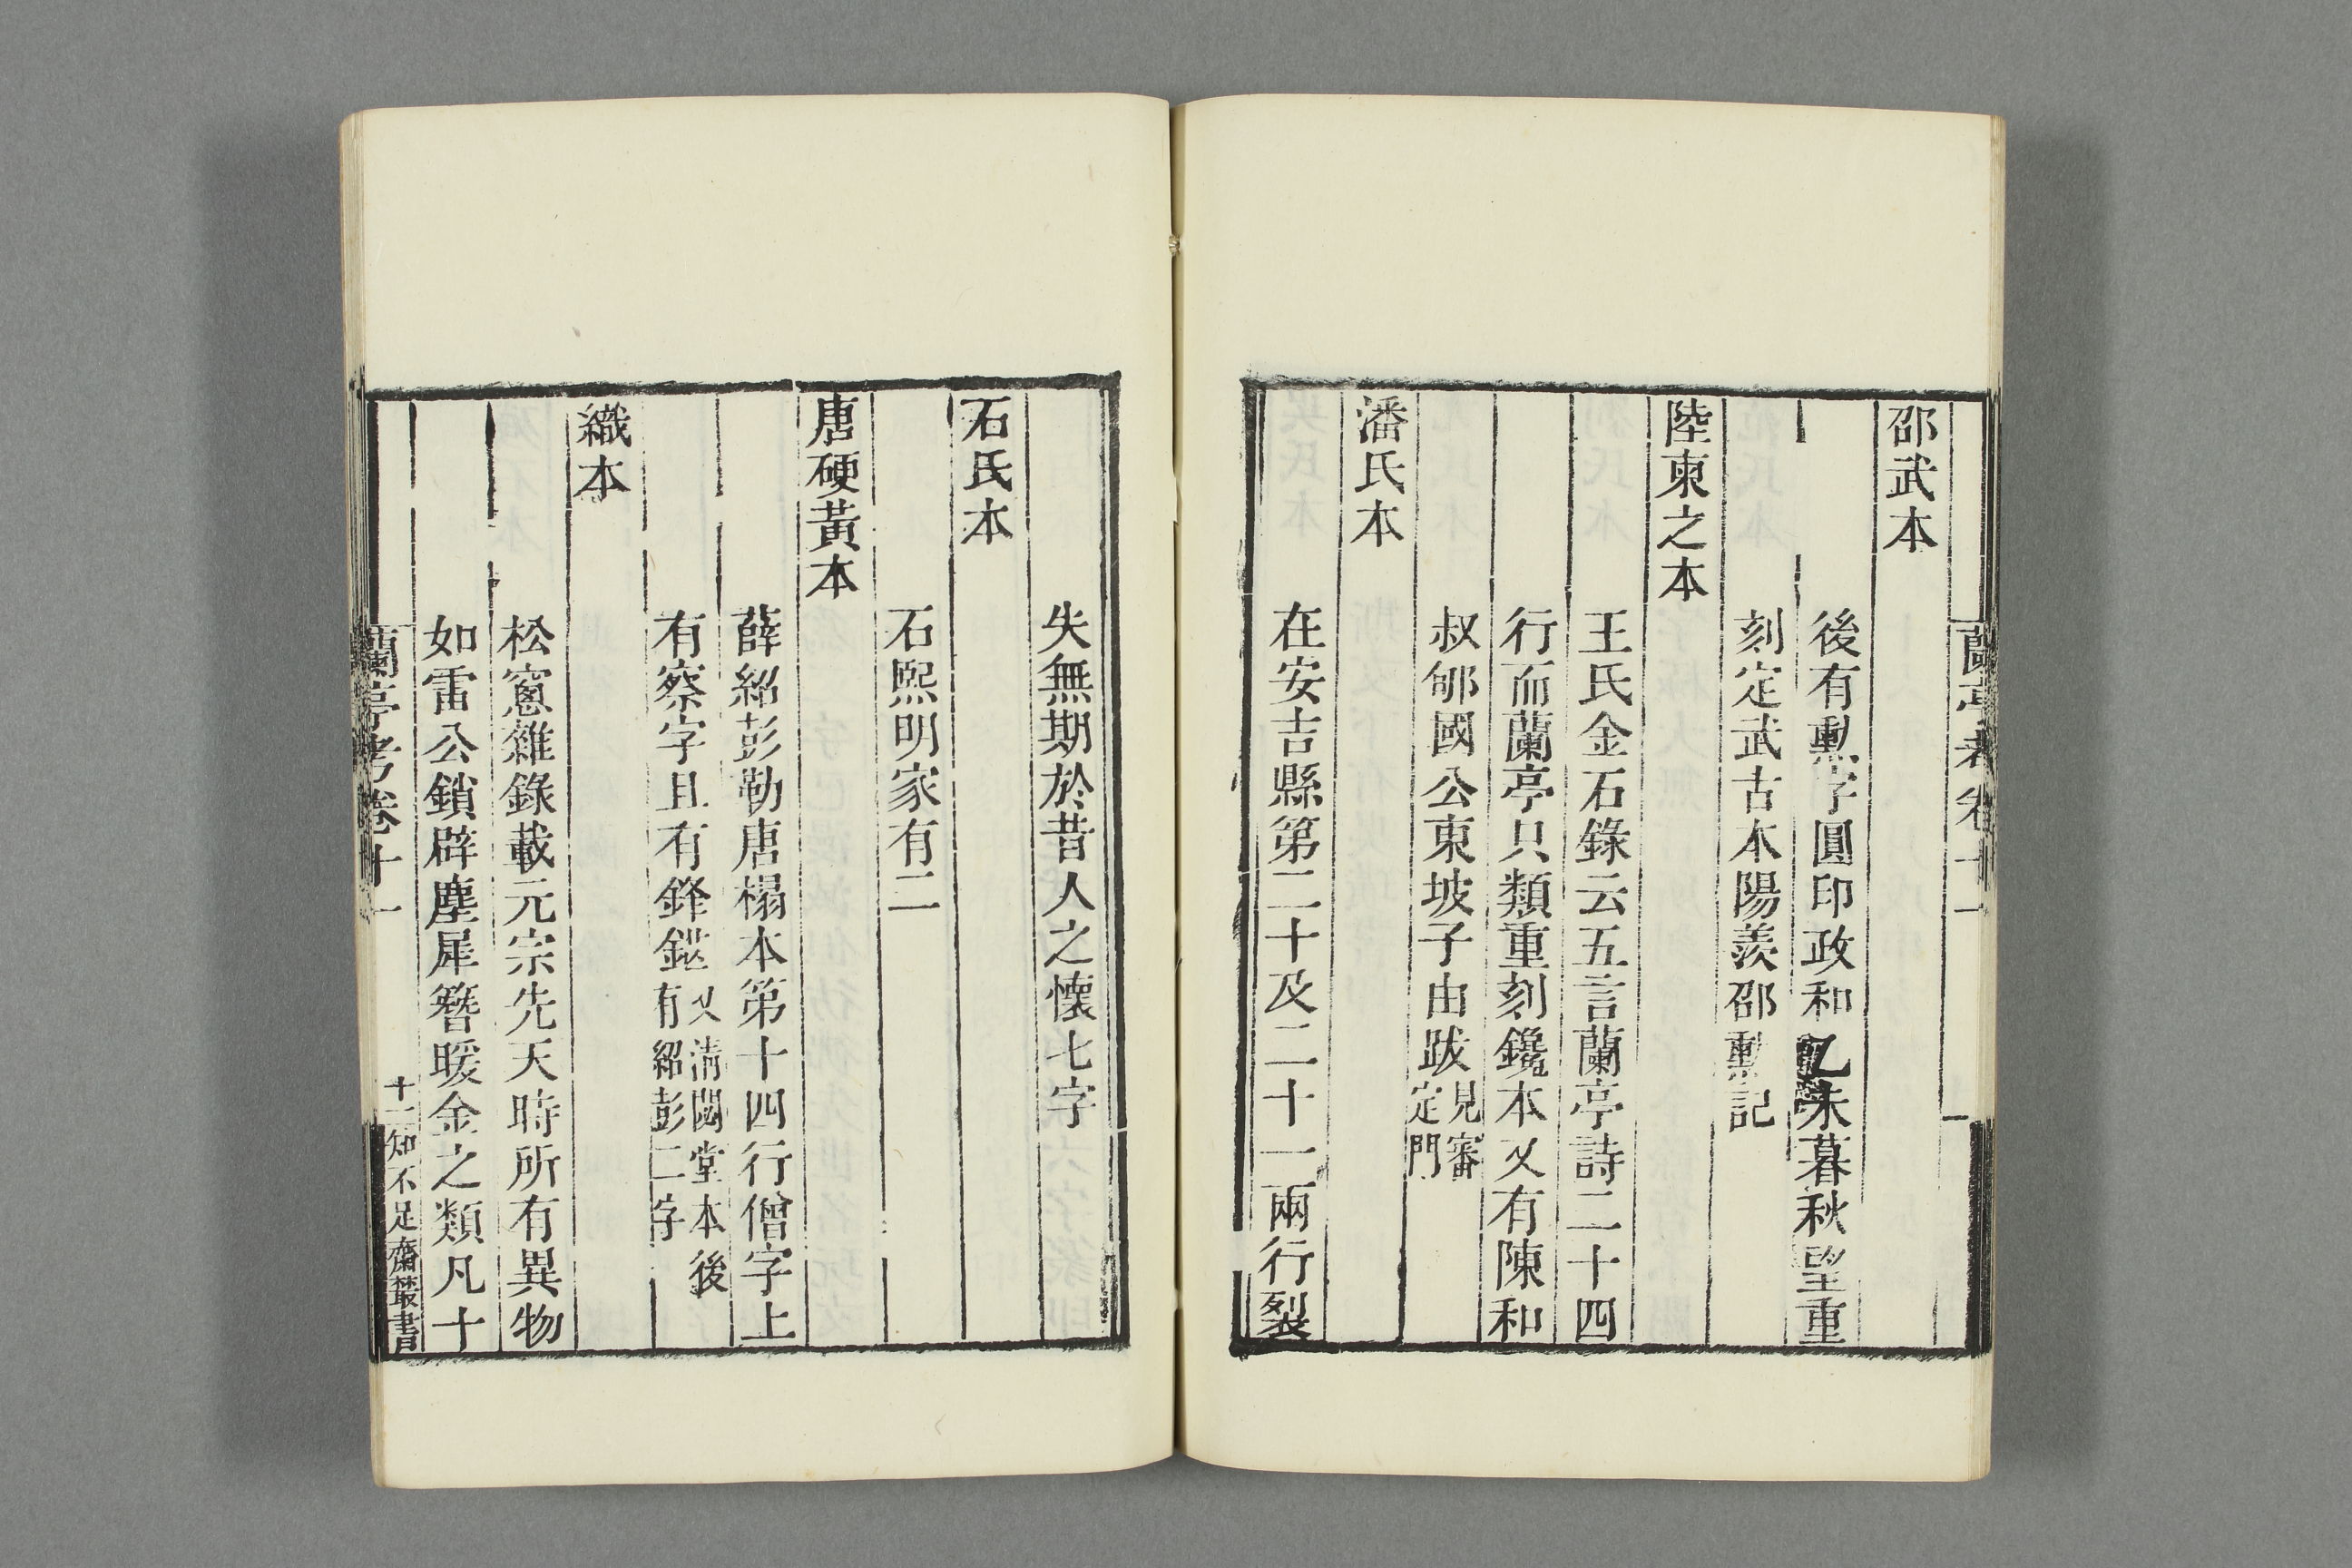 蘭亭考卷十一
邵武本
後有勳字圓印政和乙未暮秋望重
刻定武古本陽羨邵勳記
陸柬之本
王氏金石錄云五言蘭亭詩二十四
行而蘭亭只類重刻鑱本又有陳和
叔郇國公東坡子由跋見審
定門
潘氏本
在安吉縣第二十及二十一兩行裂
失無期於昔人之懷七字
石氏本
石熙明家有二
唐硬黃本
薛紹彭勒唐榻本第十四行僧字上
有察字且有鋒鋩又清閟堂本後
有紹彭二字
織本
松窻雜錄載元宗先天時所有異物
如雷公鎖辟塵犀簪暖金之類凡十
蘭亭考卷十一
十一知不足齋叢書